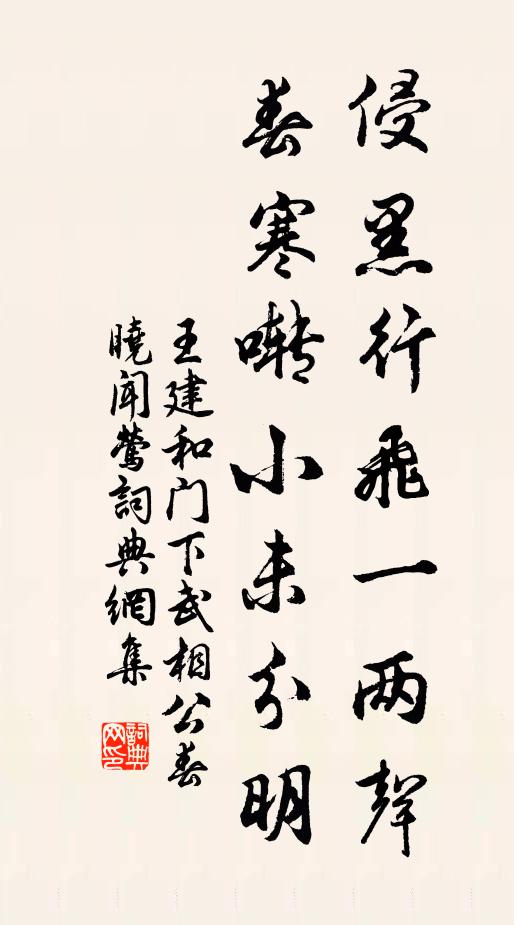 侵黑行飛一两聲
春寒囀小未分明
王建和门下武相公春
曉闻鶯詞典網集
詞典网印